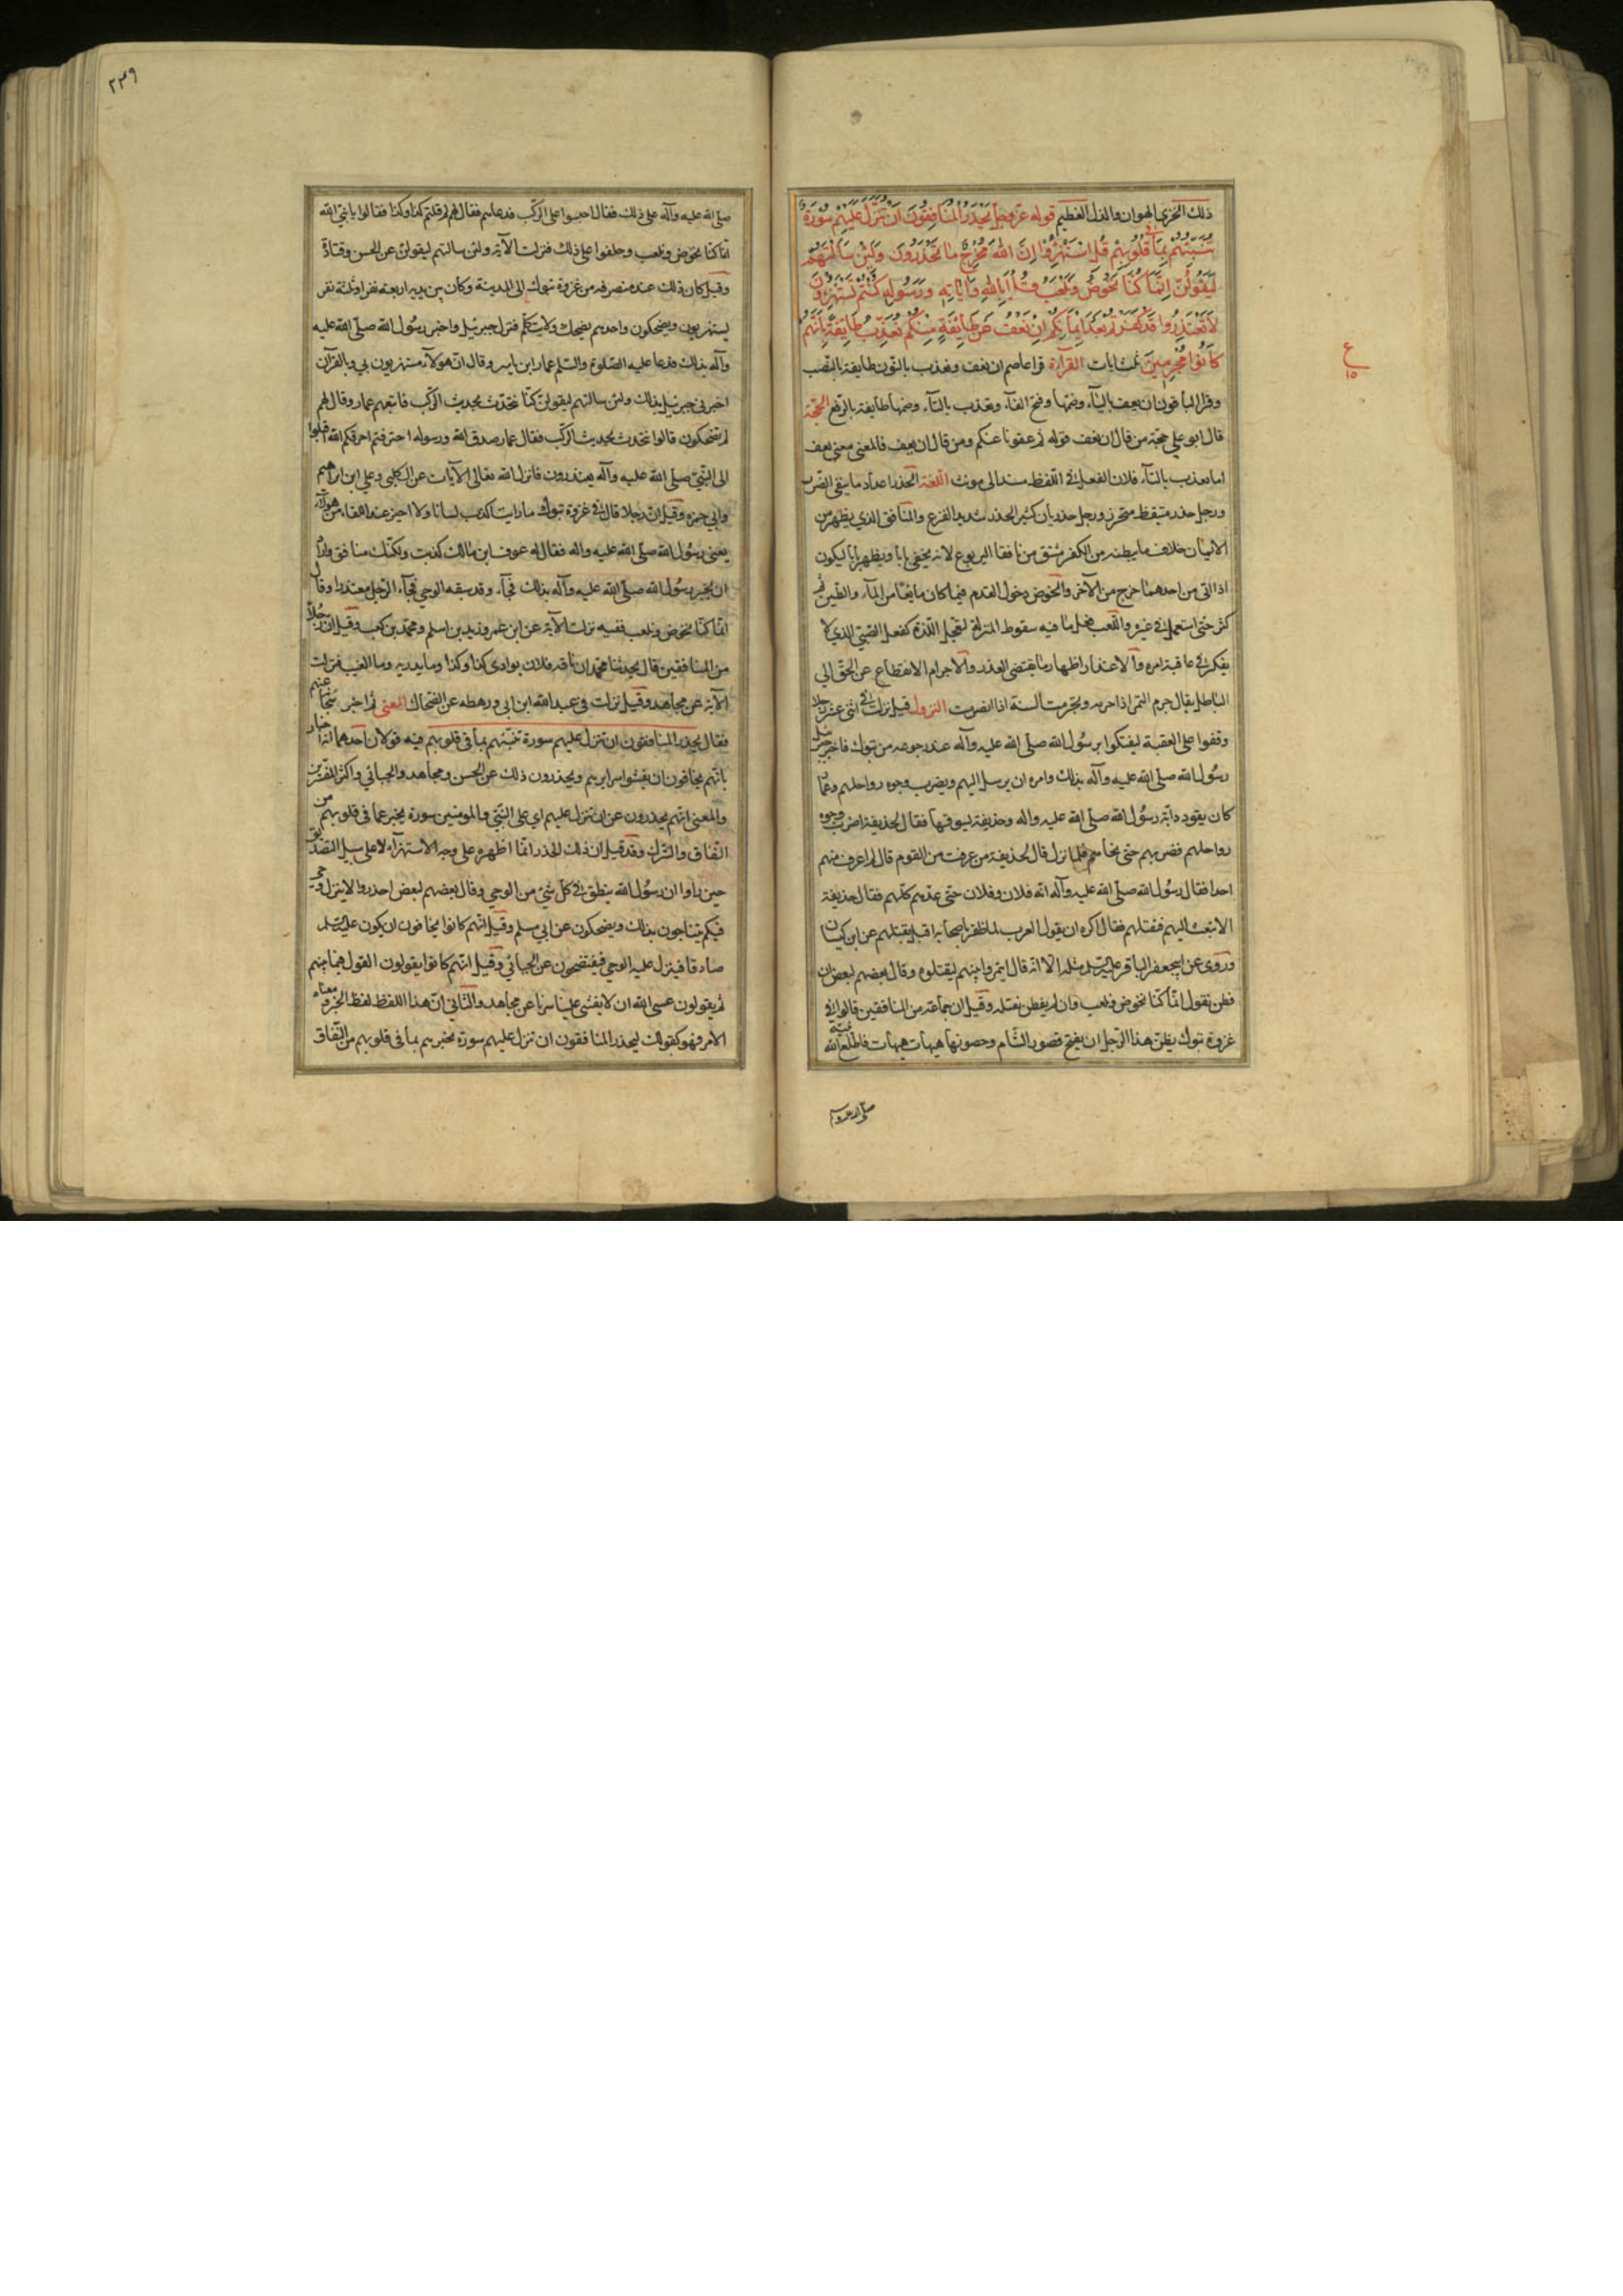 ذلك الخزي الهوان والذل العظيم قوله عز وجل يَحْذَرُ الْمُنَافِقُونَ اَنْ تُنَزَّلَ عَلَيْهِمْ سُورَةٌ
تُنَبِّئُهُمْ بِمَا فِي قُلُوبِهِمْ قُلِ اسْتَهْزِؤُا اِنَّ اللهَ مُخْرِجٌ مَا تَحْذَرُونَ وَلَئِنْ سَاَلْتَهُمْ
لَيَقُولُنَّ اِنَّمَا كُنَّا نَخُوضُ وَنَلْعَبُ قُلْ اَبِاللهِ وَاٰيَاتِهِ وَرَسُولِهِ كُنْتُمْ تَسْتَهْزِؤُنَ
لَا تَعْتَذِرُوا قَدْ كَفَرْتُمْ بَعْدَ اِيمَانِكُمْ اِنْ نَعْفُ عَنْ طَايِفَةٍ مِنْكُمْ نُعَذِّبْ طَايِفَةً بِاَنَّهُمْ
كَانُوا مُجْرِمِينَ ثلث ايات القراءة قرا عاصم ان نعف ونعذب بالنون طايفة بالنصب
وقرا الباقون ان يعف بالياء وضمها وفتح الفاء وتعذب بالتاء وضمها طايفة بالرفع الحجة
قال ابو علي حجة من قال ان نعف قوله ثم عفونا عنكم ومن قال ان يعف فالمعنى معنى نعف
اما تعذب بالتاء فلان الفعل في اللفظ مسند الى مونث اللغة الحذر اعداد ما يتقي الضرر
ورجل حذر متيقظ متحرز ورجل حذريان كثير الحذر شديد الفزع والمنافق الذي يظهر من
الايمان خلاف ما يبطنه من الكفر مشتق من نافقا اليربوع لانه يخفي بابا ويظهر بابا ليكون
اذا اتي من احدهما خرج من الآخر والخوض دخول القدم فيما كان مايعا من الماء والطين ثم
كثر حتى استعمل في غيره واللعب فعل ما فيه سقوط المنزلة لتحجيل اللذة كفعل الصبي الذي لا
يفكر في عاقبة امره والاعتذار اظهار ما يقتضي العذر والاجرام الانقطاع عن الحق الى
الباطل يقال جرم الثمر اذا صرمه وتجرمت السنة اذا انصرمت النزول قيل نزلت في اثنى عشر رجلا
وقفوا على العقبة ليفتكوا برسول الله صلى الله عليه وآله عند رجوعه من تبوك فاخبر جبرئيل
رسول الله صلى الله عليه وآله بذلك وامره ان يرسل اليهم ويضرب وجوه رواحلهم وعمار
كان يقود دابة رسول الله صلى الله عليه واله وحذيفة يسوقها فقال لحذيفة اضرب وجوه
رواحلهم فضربهم حتى نحاهم فلما نزل قال لحذيفة من عرفت من القوم قال لم اعرف منهم
احدا فقال رسول الله صلى الله عليه وآله انه فلان وفلان حتى عدهم كلهم فقال حذيفة
الا تبعث اليهم فتقتلهم فقال اكره ان يقول العرب لما ظفر باصحابه اقبل يقتلهم عن ابن كيسان
وروى عن ابي جعفر الباقر عليه السلم مثله الا انه قال ايتمروا بينهم ليقتلوه وقال بعضهم لبعض ان
فطن نقول انما كنا نخوض ونلعب وان لم يفطن نقتله وقيل ان جماعة من المنافقين قالوا في
غزوة تبوك يظن هذا الرجل ان يفتح قصور الشام وحصونها هيهات هيهات فاطلع الله نبيه
ع
١٥
٢٣٩
صلى الله عليه وآله على ذلك فقال احبسوا على الركب فدعاهم فقال لهم قلتم كذا وكذا فقالوا يا نبي الله
انما كنا نخوض ونلعب وحلفوا على ذلك فنزلت الآية ولئن سالتهم ليقولن عن الحسن وقتادة
وقيل كان ذلك عند منصرفه من غزوة تبوك الى المدينة وكان بين يديه اربعة نفر او ثلثة نفر
يستهزيون ويضحكون واحدهم يضحك ولا يتكلم فنزل جبرئيل واخبر رسول الله صلى الله عليه
وآله بذلك فدعا عليه الصلوة والسلم عمار ابن ياسر وقال ان هولاء مستهزيون بي وبالقرآن
اخبرني جبرئيل بذلك ولئن سالتهم ليقولن كنا نتحدث بحديث الركب فاتبعهم عمار وقال لهم
لم تضحكون قالوا نتحدث بحديث الركب فقال عمار صدق الله ورسوله احترقتم احرقكم الله اقبلوا
الى النبي صلى الله عليه وآله يعتذرون فانزل الله تعالى الآيات عن الكلبي وعلي ابن ابراهيم
وابي حمزة وقيل ان رجلا قال في غزوة تبوك ما رايت اكذب لسانا ولا اجبن عند اللقاء من هولاء
يعني رسول الله صلى الله عليه واله فقال له عوف ابن مالك كذبت ولكنك منافق واراد
ان يخبر رسول الله صلى الله عليه وآله بذلك فجاء وقد سبقه الوحي فجاء الرجل معتذرا وقال
انما كنا نخوض ونلعب ففيه نزلت الآية عن ابن عمر وزيد بن اسلم ومحمد بن كعب وقيل ان رجلا
من المنافقين قال يحدثنا محمد ان ناقة فلان بوادى كذا وكذا وما يدريه وما الغيب فنزلت
الآية عن مجاهد وقيل نزلت في عبد الله ابن ابي ورهطه عن الضحاك المعنى ثم اخبر سبحانه عنهم
فقال يحذر المنافقون ان تنزل عليهم سورة تنبئهم بما في قلوبهم فيه قولان احدهما انه اخبار
بانهم يخافون ان يفشوا سرايرهم ويحذرون ذلك عن الحسن ومجاهد والجبائي واكثر المفسرين
والمعنى انهم يحذرون عن ان تنزل عليهم اى على النبي والمومنين سورة يخبر عما في قلوبهم من
النفاق والشرك وقد قيل ان ذلك الحذر انما اظهره على وجه الاستهزاء لا على سبيل التصديق
حين راوا ان رسول الله ينطق في كل شئ من الوحي وقال بعضهم لبعض احذروا لا ينزل وحي
فيكم يتناجون بذلك ويضحكون عن ابي مسلم وقيل انهم كانوا يخافون ان يكون عليه السلم
صادقا فينزل عليه الوحي فيفتضحون عن الجبائي وقيل انهم كانوا يقولون القول فيما بينهم
ثم يقولون عسى الله ان لا يفشى علينا سرنا عن مجاهد والثاني ان هذا اللفظ لفظ الخبر ومعناه
الامر فهو كقولك ليحذر المنافقون ان تنزل عليهم سورة تخبرهم بما في قلوبهم من النفاق